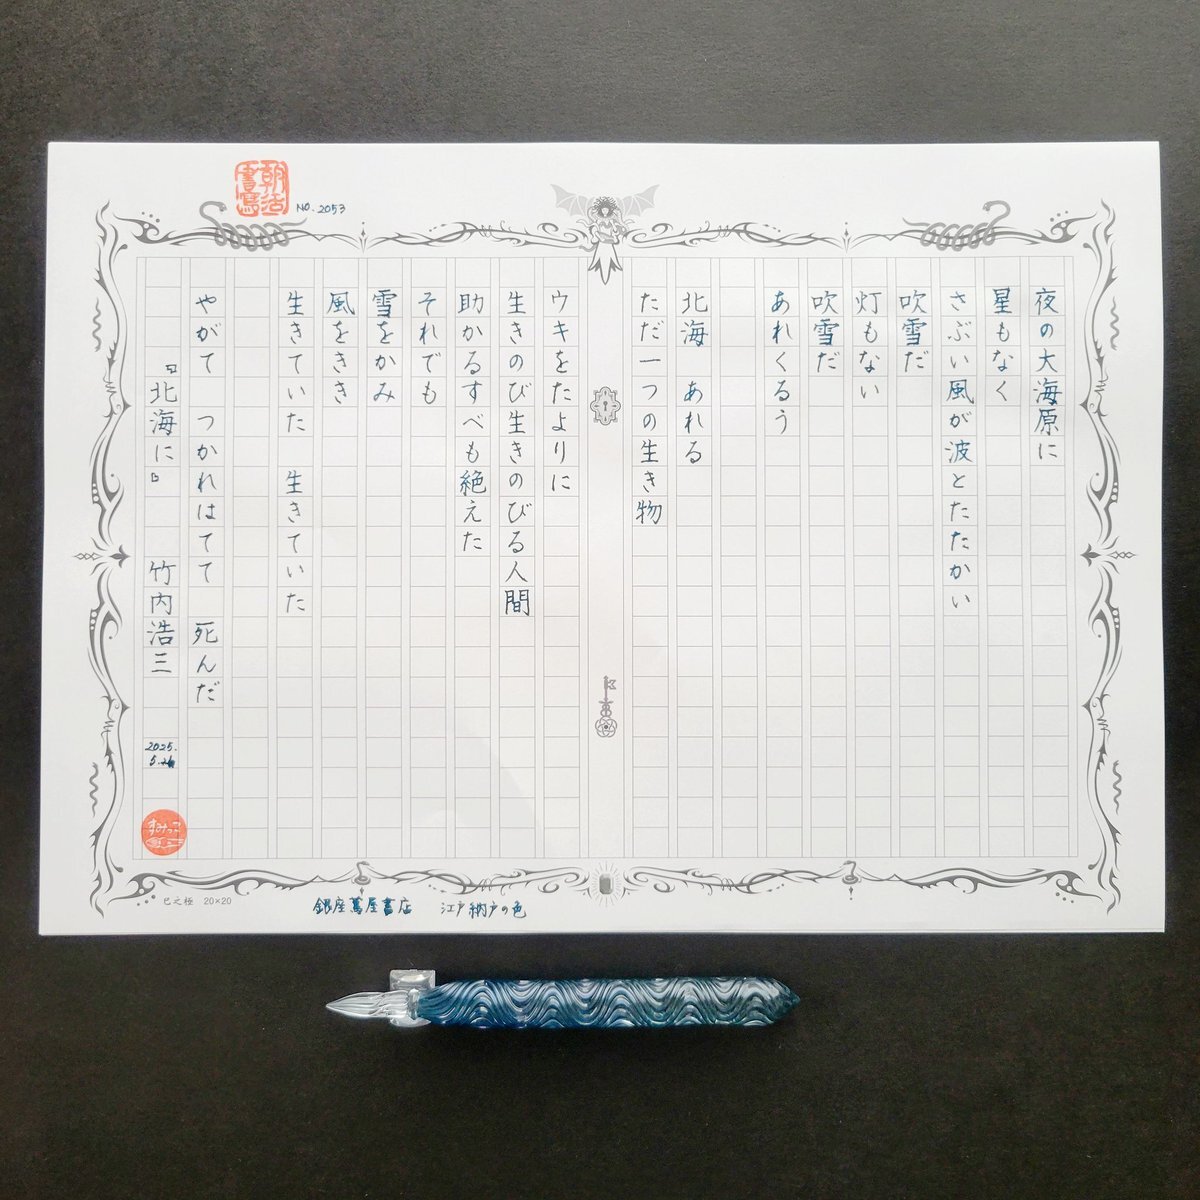 朝活書写
NO. 2053
夜の大海原に
星もなく
さぶい風が波とたたかい
吹雪だ
灯もない
吹雪だ
あれくるう
北海　あれる
ただ一つの生き物
ウキをたよりに
生きのび生きのびる人間
助かるすべも絶えた
それでも
雪をかみ
風をきき
生きていた　生きていた
やがて　つかれはてて　死んだ
『北海に』　竹内浩三
2025.
5.26
すみっこ
巳之極　20×20
銀座蔦屋書店　江戸納戸の色